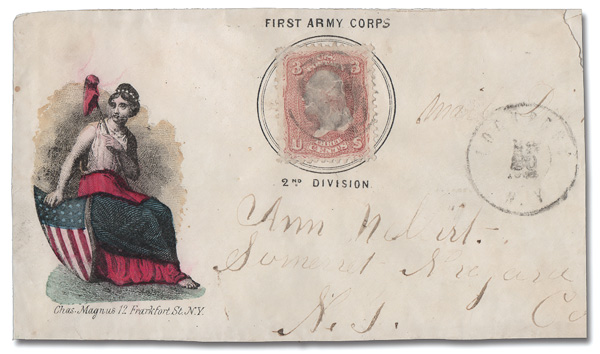 FIRST ARMY CORPS
3 3
U THREE CENTS S
2ND DIVISION
N.Y.
Ann
Somerset Niagara
Co
N.Y.
Chas. Magnus 12 Frankfort. St. N.Y.